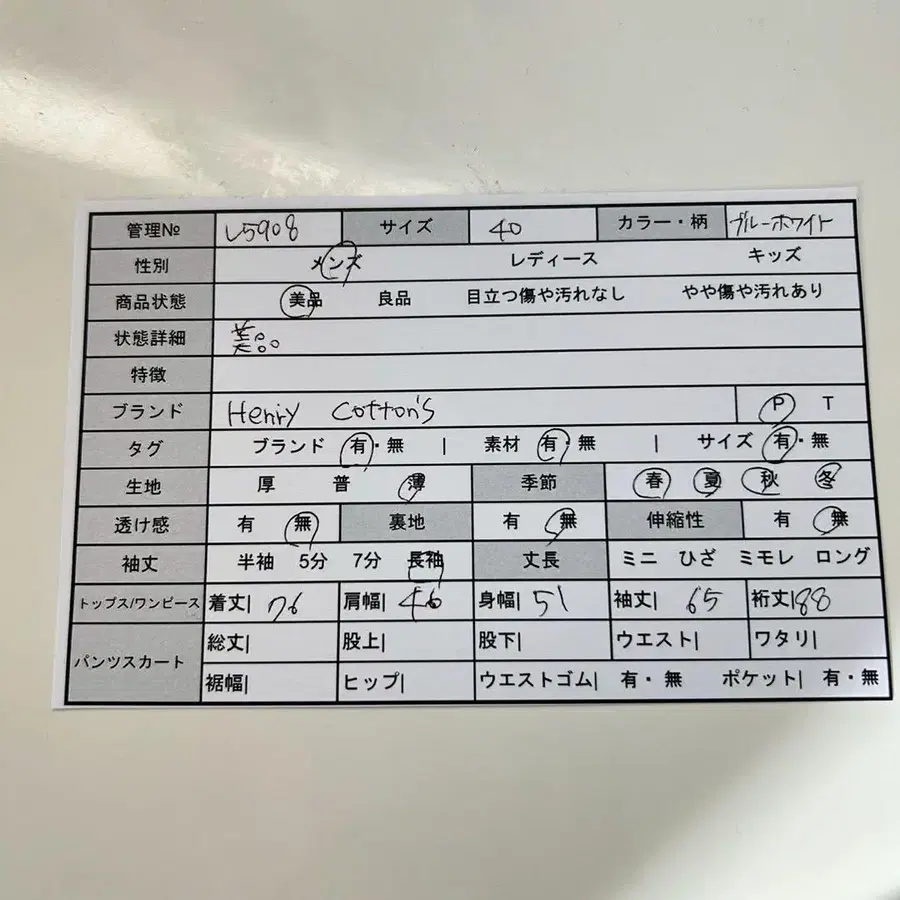 管理№ L5908 サイズ 40 カラー・柄 ブルーホワイト
性別 メンズ レディース キッズ
商品状態 美品 良品 目立つ傷や汚れなし やや傷や汚れあり
状態詳細 美品。
特徴
ブランド Henry Cotton's P T
タグ ブランド 有・無 | 素材 有・無 | サイズ 有・無
生地 厚 普 薄 季節 春 夏 秋 冬
透け感 有 無 裏地 有 無 伸縮性 有 無
袖丈 半袖 5分 7分 長袖 丈長 ミニ ひざ ミモレ ロング
トップス/ワンピース 着丈| 76 肩幅| 46 身幅| 51 袖丈| 65 裄丈| 88
パンツスカート 総丈| 股上| 股下| ウエスト| ワタリ|
裾幅| ヒップ| ウエストゴム| 有・無 ポケット| 有・無